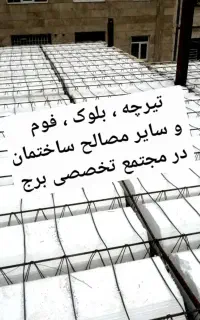 تیرچه ، بلوک ، فوم
و سایر مصالح ساختمان
در مجتمع تخصصی برج